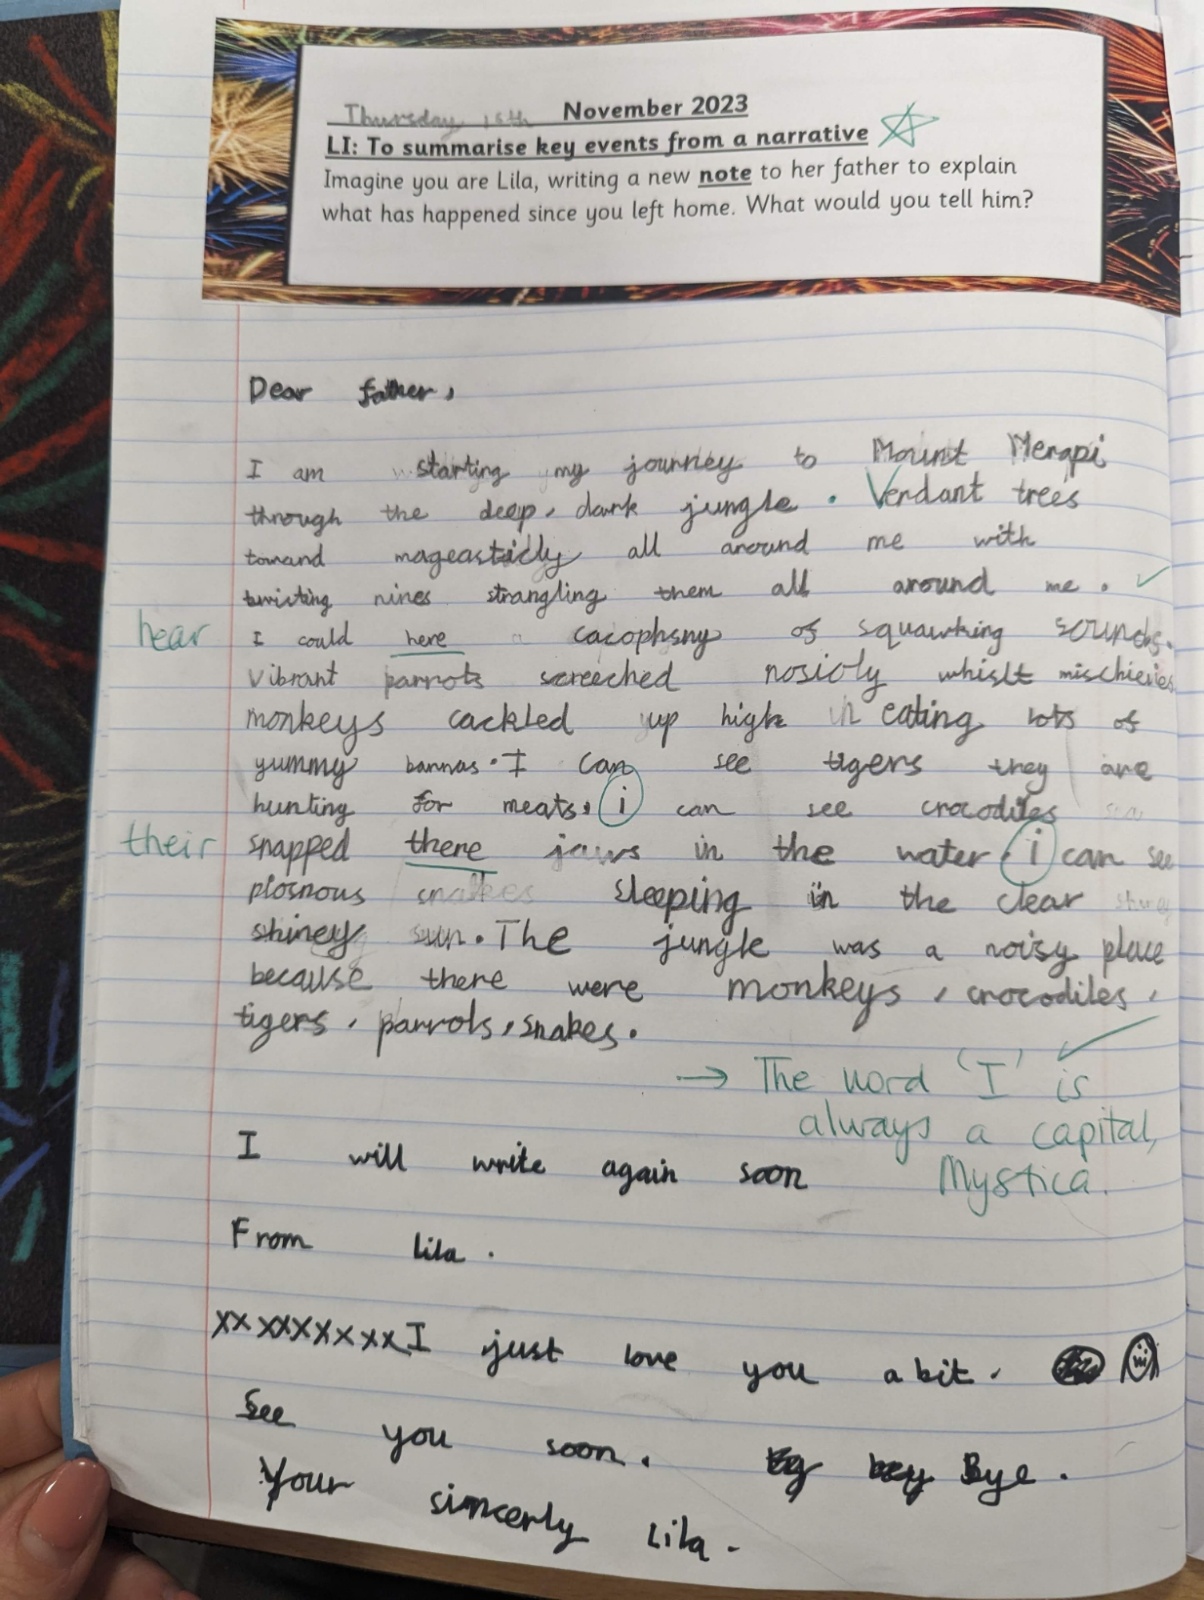 Thursday 15th November 2023
LI: To summarise key events from a narrative
Imagine you are Lila, writing a new note to her father to explain
what has happened since you left home. What would you tell him?
Dear father,
I am starting my journey to Mount Merapi
through the deep, dark jungle. Verdant trees
toward mageasticly all around me with
twisting nines strangling them all around me.
hear I could here a cacophsny of squawking sounds.
Vibrant parrots screeched nosioly whislt mischievies
monkeys cackled up high in eating lots of
yummy bannas. I can see tigers they are
hunting for meats, i can see crocodiles
their snapped there jaws in the water. i can see
plosnous snakes sleeping in the clear
shiney sun. The jungle was a noisy place
because there were monkeys, crocodiles,
tigers, parrots, snakes.
→ The word 'I' is
always a capital,
I will write again soon
Mystica.
From lila.
xxxxxxxxxx I just love you a bit.
See you soon. Bye.
Your sincerly Lila.